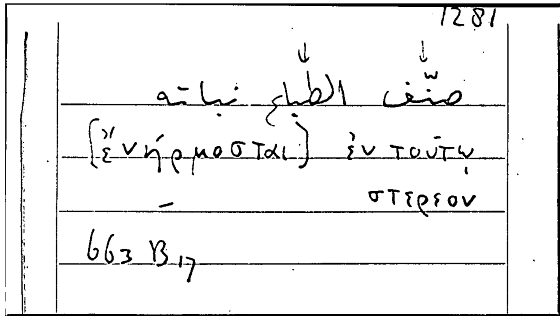 1281
صنّف الطباع نباته
[ἐνήρμοσται] ἐν τούτῳ
στερεον
663 B 17